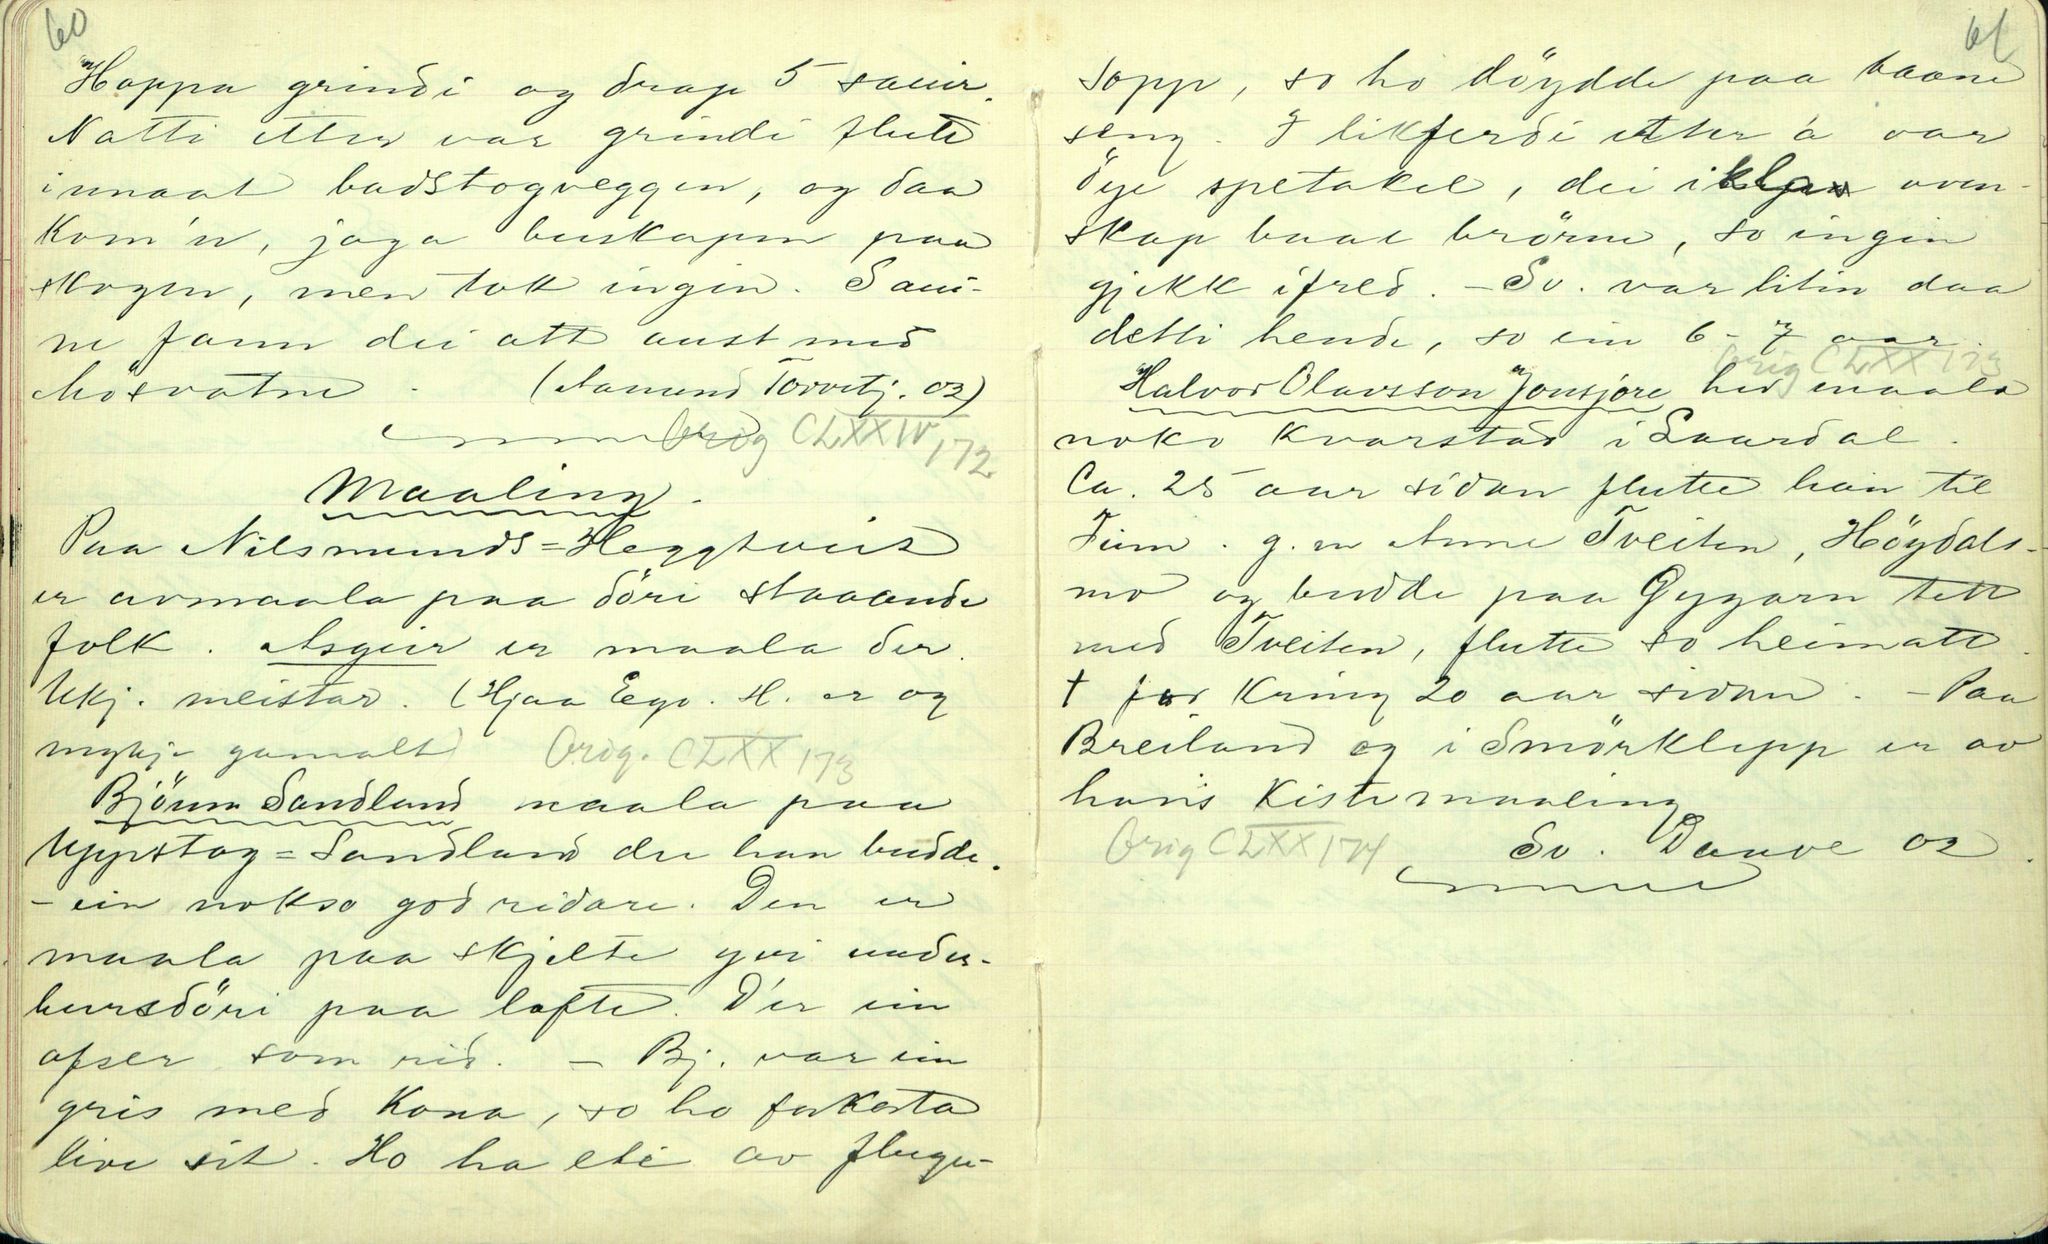 60
Hoppa grindi og drap 5 sauir.
Notti etter var grindi flutt
innaat badstogveggen, og daa
kom'n, jaga buskapen paa
skogen, men tok ingin. Saui-
ne fann dei att aust med
Mösvatne. (Aamund Torvetj. 02)
Orig CLXXIV 172
Maaling.
Paa Nilsmunds=Heggtveit
er avmaala paa döri staaande
folk. Asgeir er maala der.
Ukj. meistar. (Hjaa Ego. H. er og
mykje gamalt)
Orig. CLXX 173
Björnn Sandland maala paa
Uppstog=Sandland der han budde.
- ein nokso god ridare. Den er
maala paa skjelte yvi under-
bursdöri paa lofte. D'er ein
ofser som rid. - Bj. var ein
gris med kona, so ho forkorta
live sit. Ho ha eti av flugu-
61
sopp, so ho döydde paa baane
seng. I likferdi etter 'a var
öye spetakel, dei oven-
skap baae brörne, so ingin
gjekk ifred. - Sv. var litin daa
detti hende, so ein 6-7 aar.
Orig CLXX 173
Halvor Olavsson Jonsjore hev maala
noko Kvarstad i Laardal.
Ca. 25 aar sidan flutte han til
Finn. g. m Anne Tveiten, Höydals-
mo og budde paa Gygarn tett
med Tveiten, flutte so heimatt.
† for kring 20 aar sidan. - Paa
Breiland og i Smörklepp er av
hans kistemaaling
Orig CLXX 174
Sv. Dauve 02.